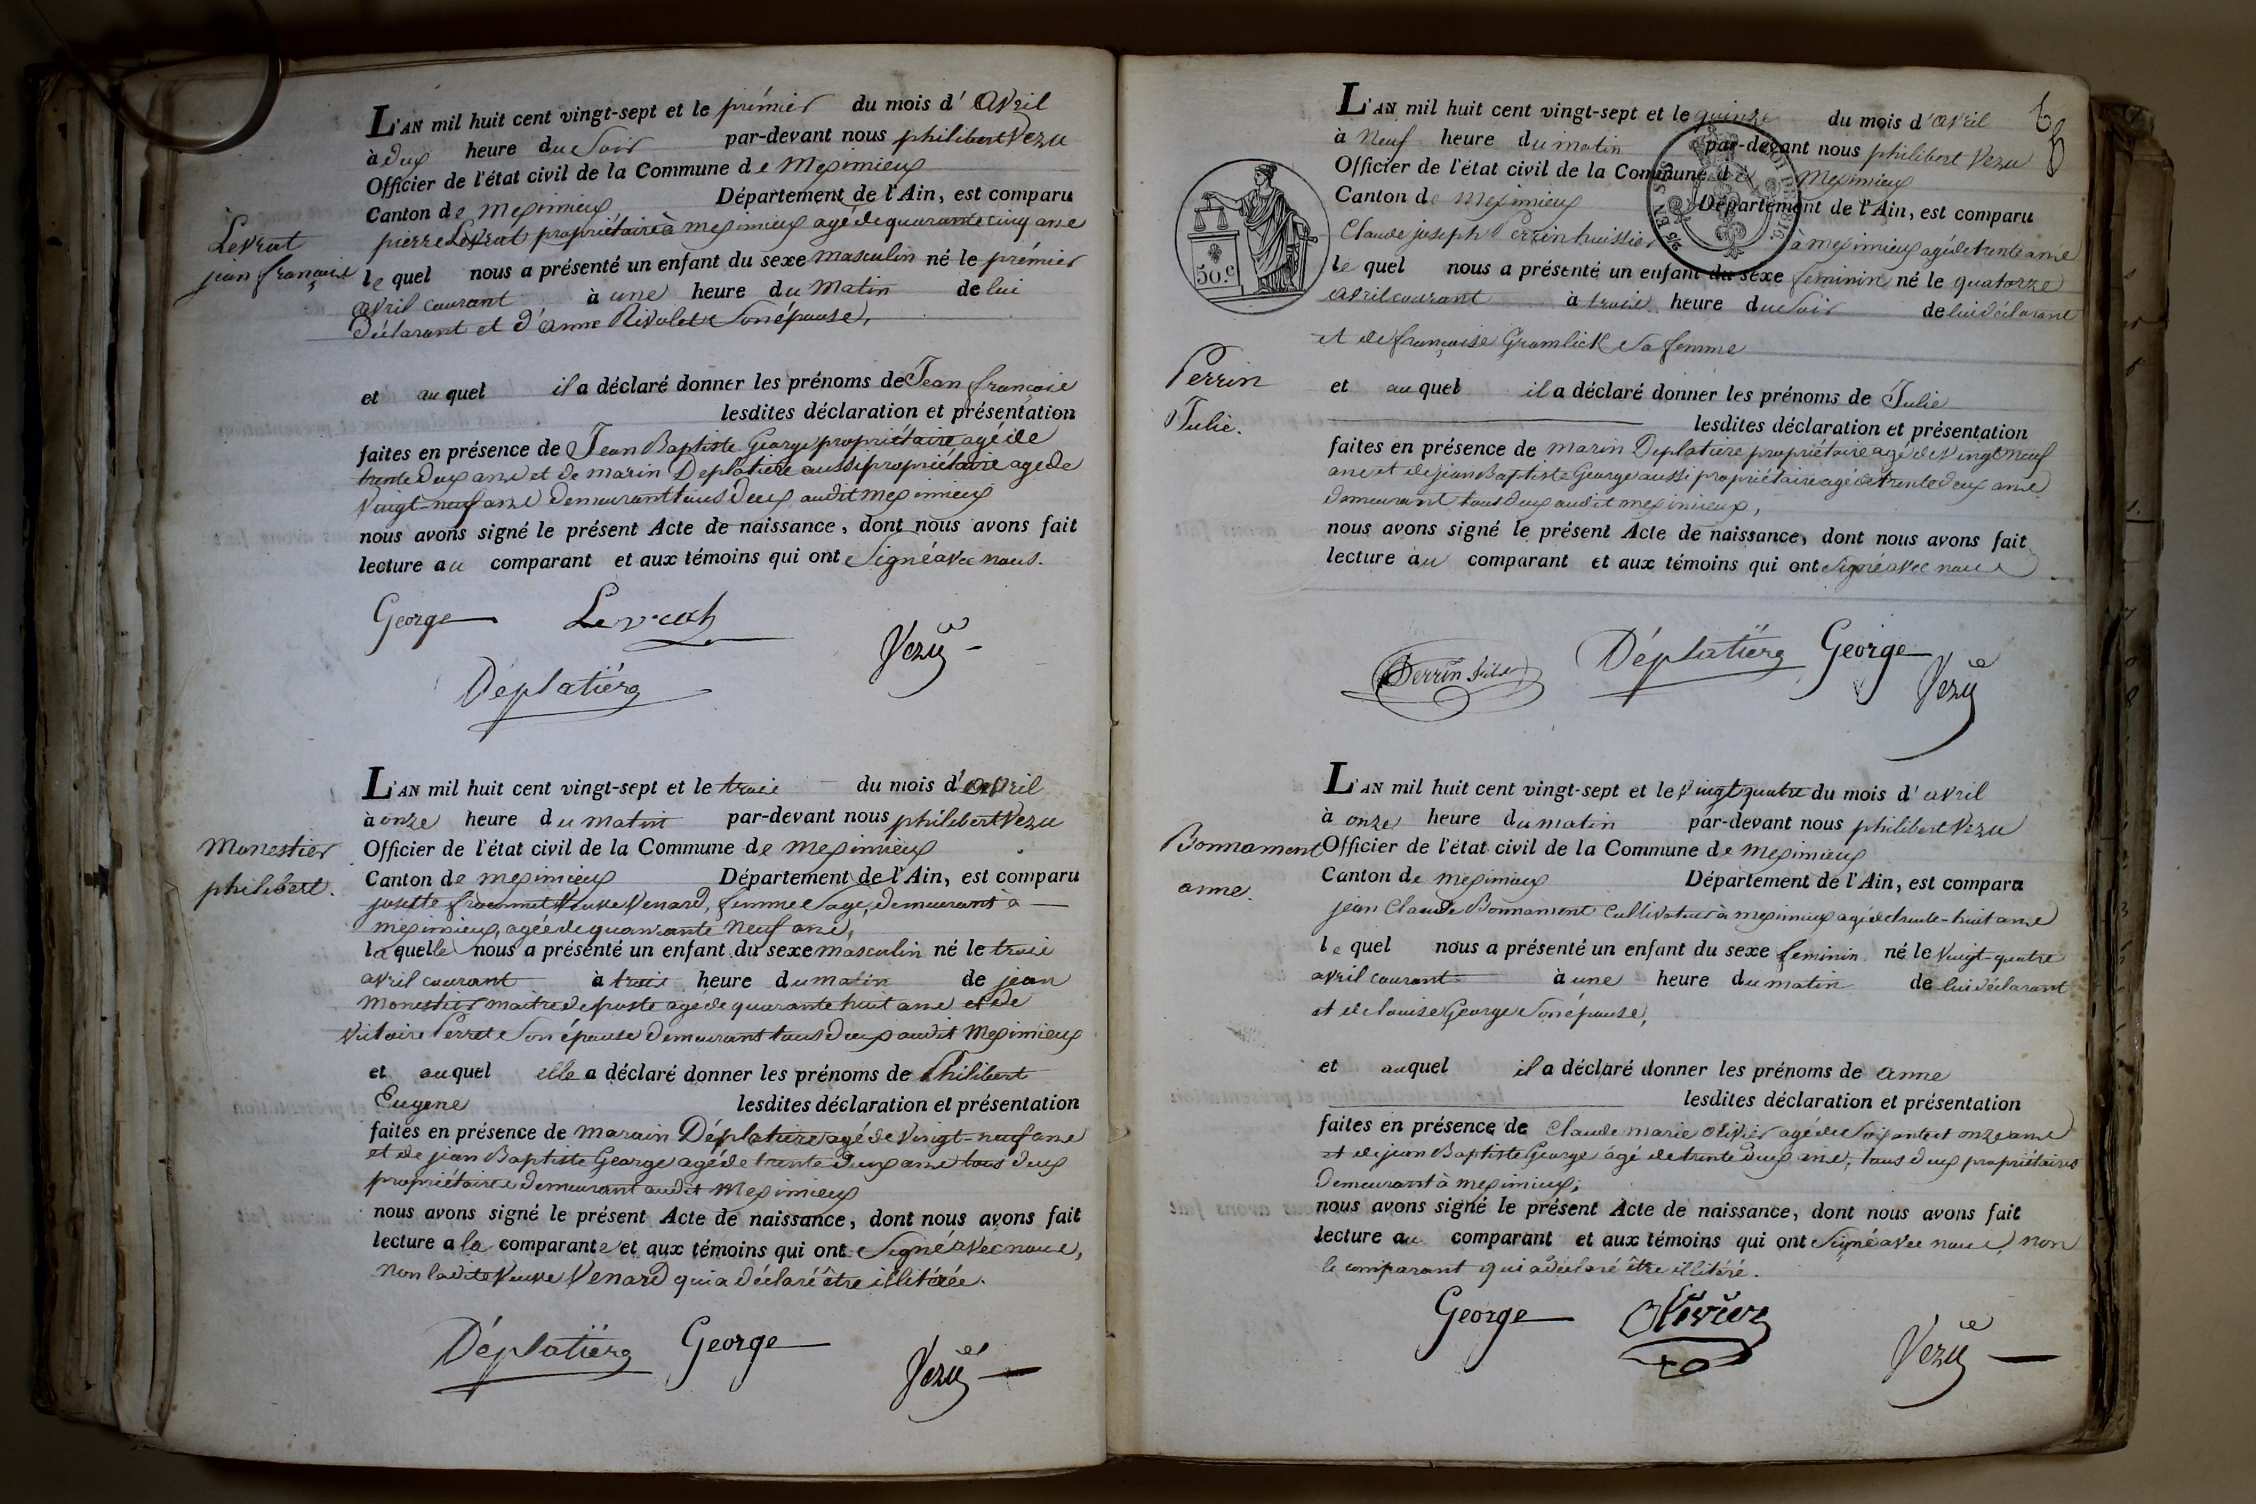 L'AN mil huit cent vingt-sept et le prémier du mois d'Avril
à dux heure du Soir par-devant nous philibert Vezu
Officier de l'état civil de la Commune de Meximieux
Canton de Meximieux Département de l'Ain, est comparu
Levrat
jean françois
pierre Levrat propriétaire à meximieux agé de quarante cinq ans
le quel nous a présenté un enfant du sexe masculin né le prémier
avril courant à une heure du Matin de lui
déclarant et d'anne Rivolet Son épouse,
et au quel il a déclaré donner les prénoms de Jean françois
lesdites déclaration et présentation
faites en présence de Jean Baptiste George propriétaire agé de
trente dux ans et de marin Deplatiere aussi propriétaire agé de
vingt-neuf ans demeurant tous deux audit meximieux
nous avons signé le présent Acte de naissance, dont nous avons fait
lecture au comparant et aux témoins qui ont Signé avec nous.
George Levrat
Vezu
Déplatière
L'AN mil huit cent vingt-sept et le trois du mois d'avril
à onze heure du matin par-devant nous philibert Vezu
Monestier
philibert.
Officier de l'état civil de la Commune de meximieux
Canton de meximieux Département de l'Ain, est comparu
josette Veuve Venard, femme Sage, demeurant à
meximieux, agée de quarante Neuf ans,
la quelle nous a présenté un enfant du sexe masculin né le trois
avril courant à trois heure du matin de jean
Monestier maitre de poste agé de quarante huit ans et de
Victoire Perret Son épouse demeurant tous dux audit Meximieux
et au quel elle a déclaré donner les prénoms de Philibert
Eugene lesdites déclaration et présentation
faites en présence de marain Déplatiere agé de vingt-neuf ans
et de jean Baptiste George agé de trente dux ans tous deux
propriétaires demeurant audit Meximieux
nous avons signé le présent Acte de naissance, dont nous avons fait
lecture a la comparante et aux témoins qui ont Signé avec nous,
non ladite Veuve Venard qui a déclaré être illitérée.
Déplatière George
Vezu
L'AN mil huit cent vingt-sept et le quinze du mois d'avril
à Neuf heure du matin par-devant nous philibert Vezu
Officier de l'état civil de la Commune de Meximieux
Canton de Meximieux Département de l'Ain, est comparu
50.c
Claude joseph Perrin huissier à meximieux agé de trente ans
le quel nous a présenté un enfant du sexe feminin né le quatorze
avril courant à trois heure du Soir de lui déclarant
et de françoise Gramlick Sa femme
Perrin
Julie.
et au quel il a déclaré donner les prénoms de Julie
lesdites déclaration et présentation
faites en présence de marin Deplatiere propriétaire agé de vingt neuf
ans et de jean Baptiste George aussi propriétaire agé de trente deux ans
demeurant tous dux audit meximieux,
nous avons signé le présent Acte de naissance, dont nous avons fait
lecture au comparant et aux témoins qui ont Signé avec nous
Perrin fils Déplatière George
Vezu
L'AN mil huit cent vingt-sept et le vingt quatre du mois d'avril
à onze heure du matin par-devant nous philibert Vezu
Bonnamont
anne.
Officier de l'état civil de la Commune de Meximieux
Canton de meximieux Département de l'Ain, est comparu
jean Claude Bonnamont cultivateur à meximieux agé de trente-huit ans
le quel nous a présenté un enfant du sexe feminin né le vingt-quatre
avril courant à une heure du matin de lui déclarant
et de louise George Son épouse,
et au quel il a déclaré donner les prénoms de anne
lesdites déclaration et présentation
faites en présence de Claude marie olivier agé de Soixante et onze ans
et de jean Baptiste George agé de trente dux ans, tous deux propriétaires
demeurant à meximieux;
nous avons signé le présent Acte de naissance, dont nous avons fait
lecture au comparant et aux témoins qui ont Signé avec nous, non
le comparant qui a déclaré être illitéré.
George Olivier
Vezu